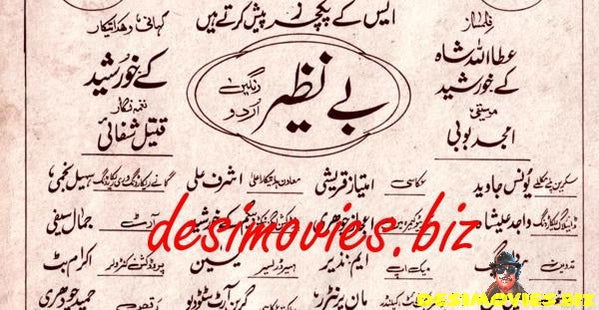 ایس کے پکچرز پیش کرتے ہیں
فلمساز
عطا اللہ شاہ
کے خورشید
موسیقی
امجد بوبی
بے نظیر
رنگین
اردو
کہانی و ہدایتکار
کے خورشید
نغمہ نگار
قتیل شفائی
سکرین پلے مکالمے یونس جاوید عکاسی امتیاز قریشی معاون ہدایتکار اعلیٰ اشرف علی گانے ریکارڈنگ وری ریکارڈنگ
ڈائیلاگ ریکارڈنگ واجد علیشاہ اعجاز چوھدری خورشید آرٹ جمال سیفی
تدوین میک اپ ایم نذیر ہیر ڈریسر یٰسین پروڈکشن کنٹرولر اکرام بٹ
مان پرنٹرز ایورگرین آرٹ سٹوڈیو رقص حمید چودھری
desimovies.biz
DESIMOVIES.BIZ